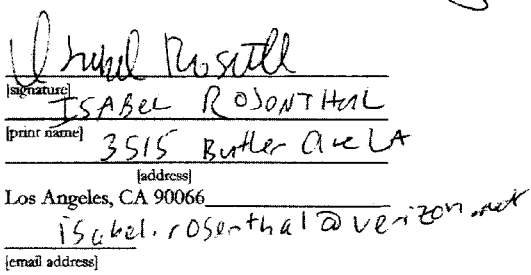 Isabel Rosenthal
[signature]
ISABEL ROSONTHAL
[print name]
3515 Butler Ave LA
[address]
Los Angeles, CA 90066
isabel.rosenthal@verizon.net
[email address]